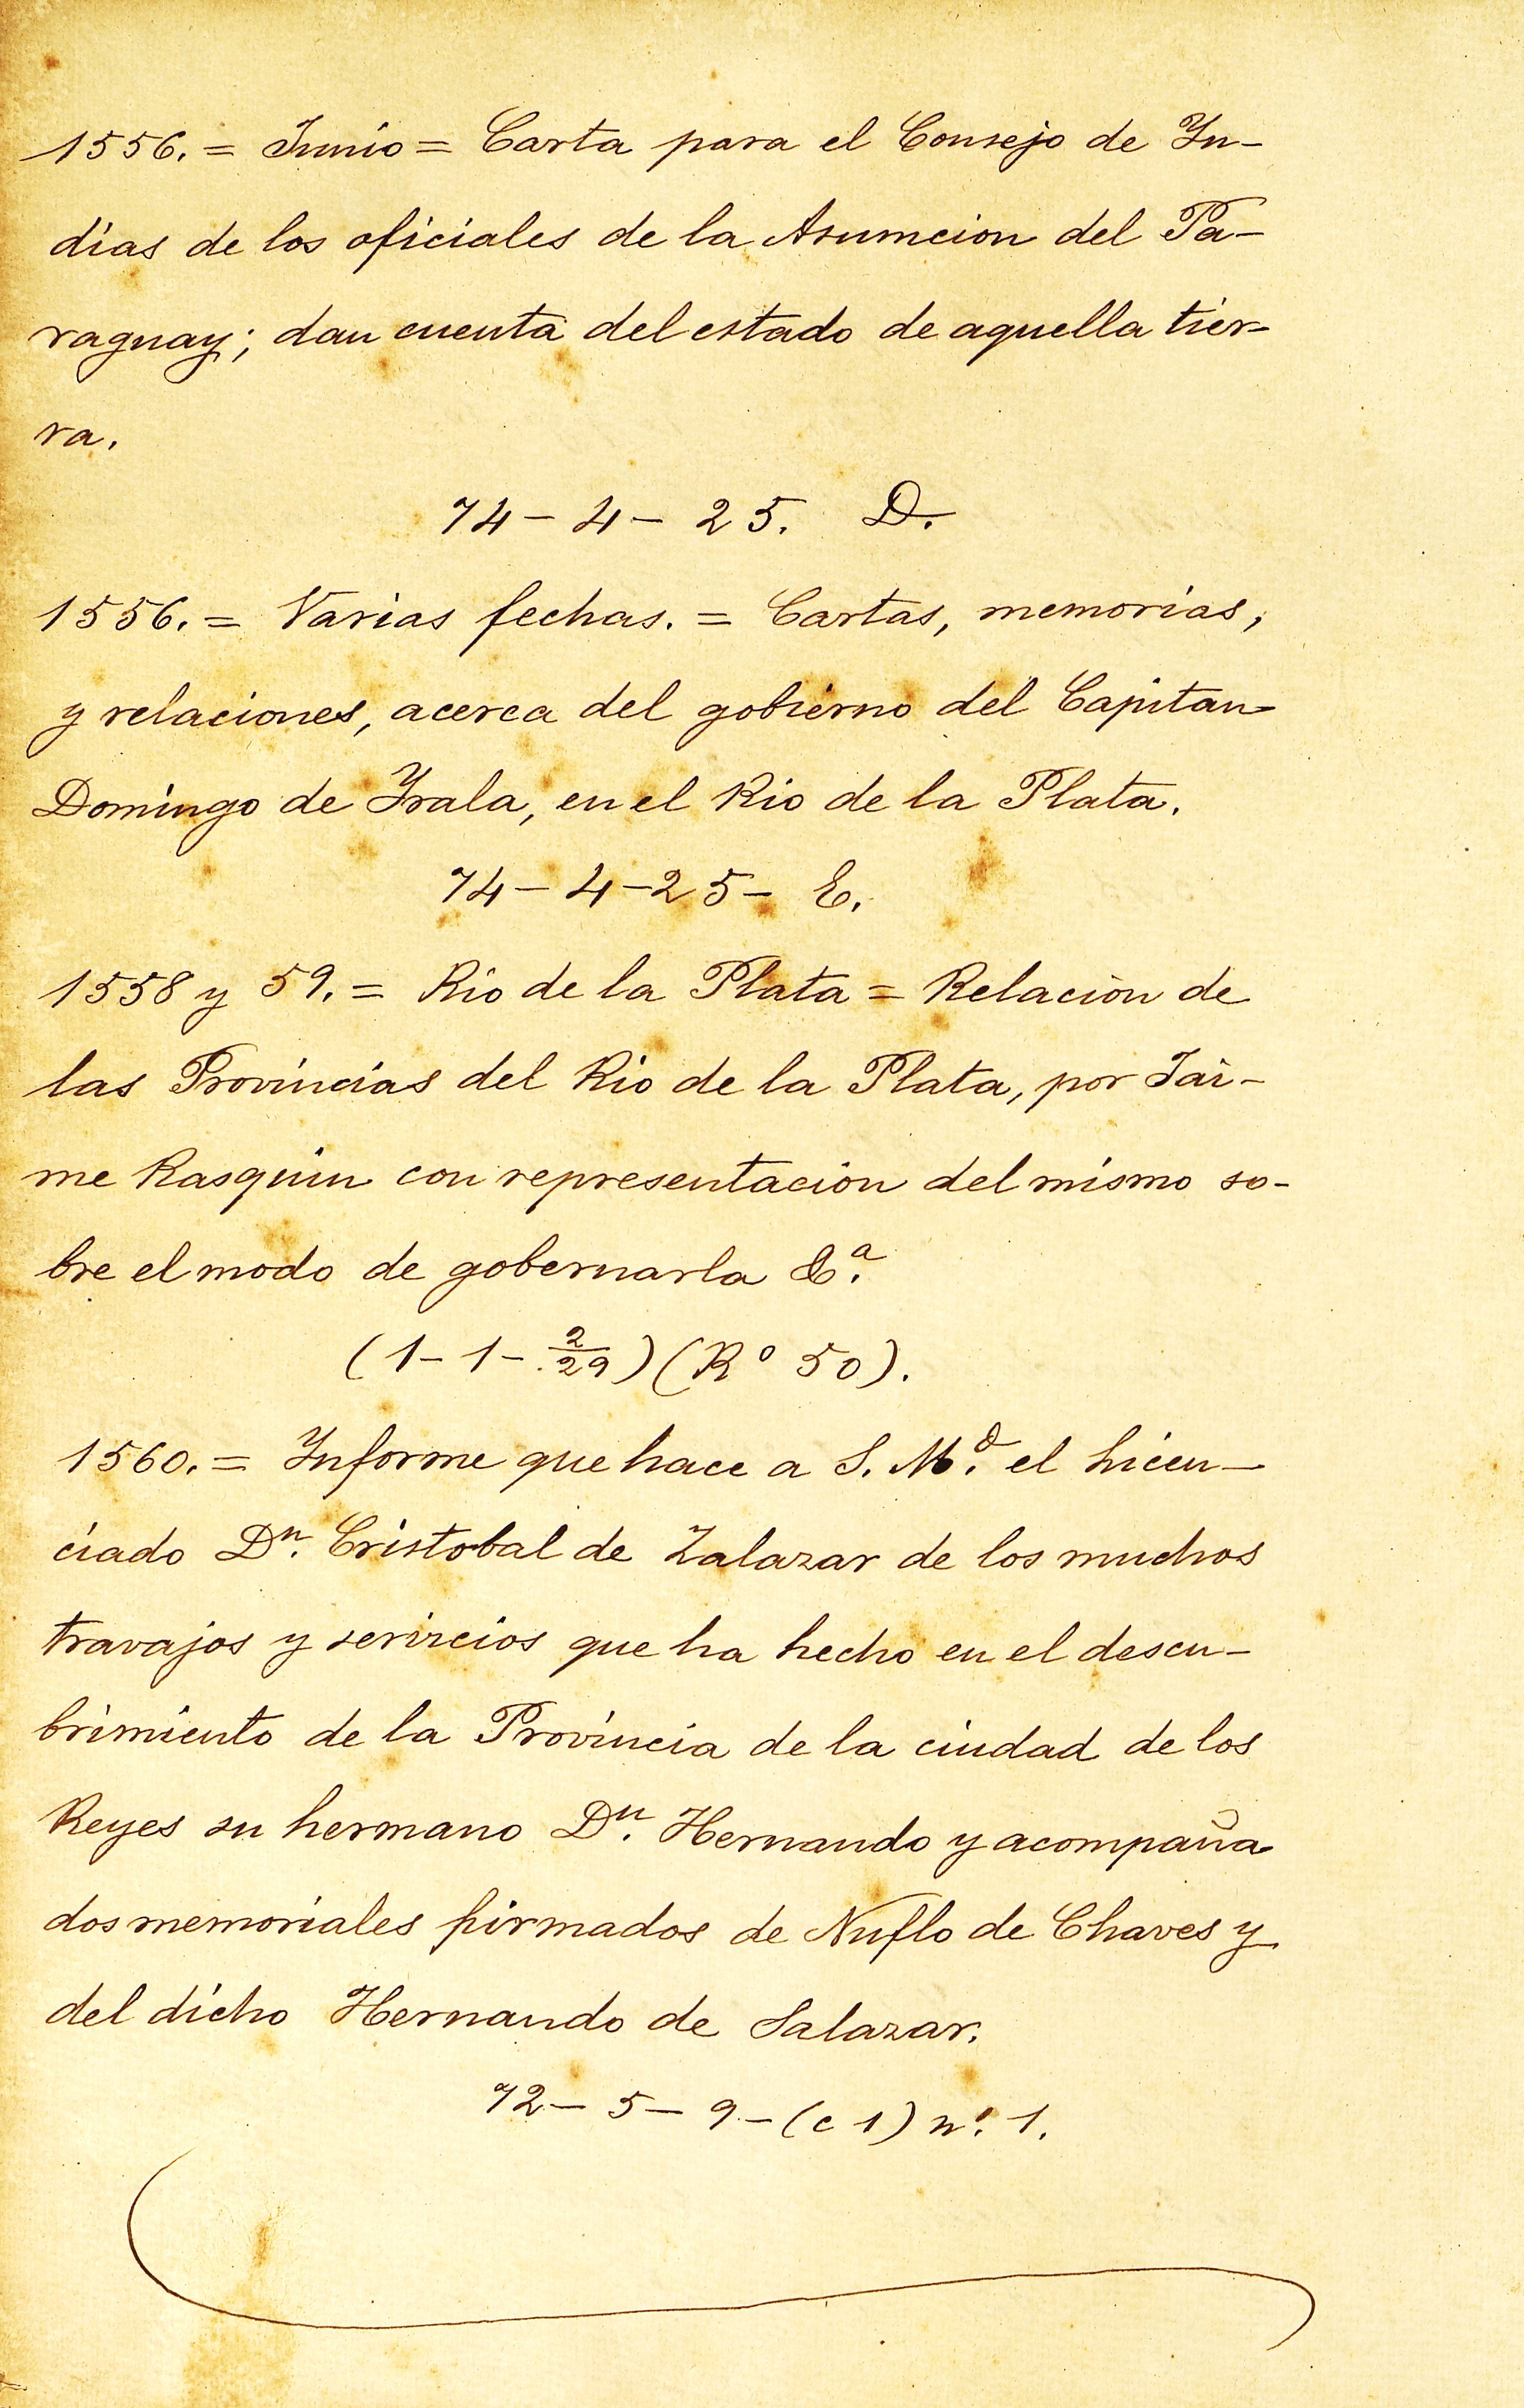 1556. = Junio = Carta para el Consejo de In-
dias de los oficiales de la Asumcion del Pa-
raguay; dan cuenta del estado de aquella tier-
ra.
74 - 4 - 25. D.
1556. = Varias fechas. = Cartas, memorias,
y relaciones, acerca del gobierno del Capitan
Domingo de Irala, en el Rio de la Plata.
74 - 4 - 25 - E.
1558 y 59. = Rio de la Plata = Relación de
las Provincias del Rio de la Plata, por Jai-
me Rasquin con representación del mismo so-
bre el modo de gobernarla &.ª
(1 - 1 - 2/29) (Rº 50).
1560. = Informe que hace a S. M.ᵈ el Licen-
ciado Dⁿ. Cristobal de Zalazar de los muchos
travajos y servicios que ha hecho en el descu-
brimiento de la Provincia de la ciudad de los
Reyes su hermano Dⁿ. Hernando y acompaña
dos memoriales firmados de Nuflo de Chaves y
del dicho Hernando de Salazar.
72 - 5 - 9 - (c 1) nº. 1.